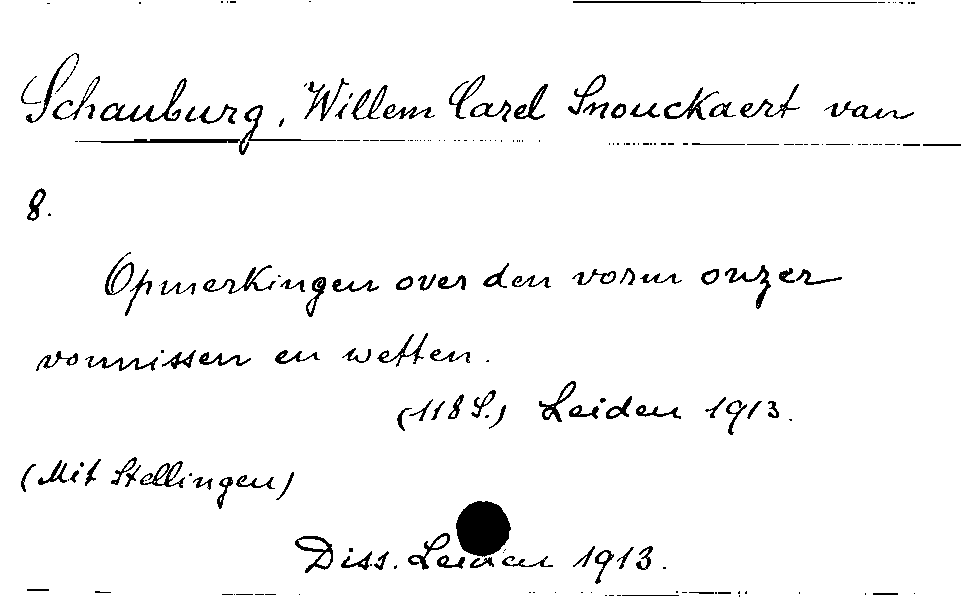 Schauburg, Willem Carel Snouckaert van
8.
Opmerkingen over den vorm onzer
vonnissen en wetten.
(118 S.) Leiden 1913.
(Mit Stellingen)
Diss. Leiden 1913.